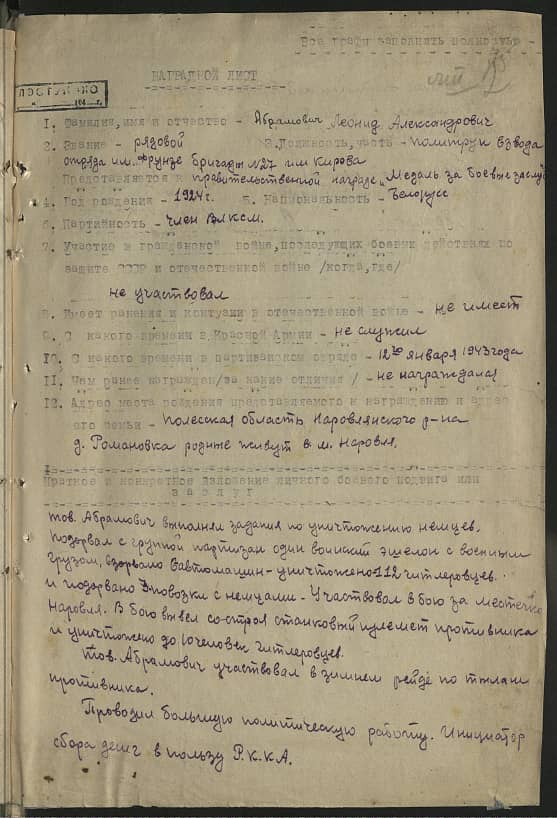 Все графы заполнять полностью -
НАГРАДНОЙ ЛИСТ
1. Фамилия, имя и отчество - Абрамович Леонид Александрович
2. Звание - рядовой 3. Должность, часть - политрук взвода
отряда им. Фрунзе бригады №27 им Кирова
Представляется к правительственной награде „Медаль за боевые заслу
4. Год рождения - 1924г. 5. Национальность - Белорусс
6. Партийность - член ВЛКСМ.
7. Участие в гражданской войне, последующих боевых действиях по
защите СССР и отечественной войне /когда, где/
не участвовал
8. Имеет ранения и контузии в отечественной войне - не имеет
9. С какого времени в Красной Армии - не служил
10. С какого времени в партизанском отряде - 12го января 1943 года
11. Чем ранее награжден /за какие отличия/ - не награждался
12. Адрес места рождения представляемого к награждению и адрес
его семьи - Полесская область Наровлянского р-на
д. Романовка родные живут в м. Наровля.
Краткое и конкретное изложение личного боевого подвига или
заслуг
тов. Абрамович выполнял задания по уничтожению немцев.
Подорвал с группой партизан один воинский эшелон с военным
грузом, взорвало автомашин - уничтожено 112 гитлеровцев.
и подорвано повозки с немцами - Участвовал в бою за местечко
Наровля. В бою вывел со строя станковый пулемет противника
и уничтожено до 10 человек гитлеровцев.
Тов. Абрамович участвовал в зимнем рейде по тылам
противника.
Проводил большую политическую работу. Инициатор
сбора денег в пользу Р.К.К.А.